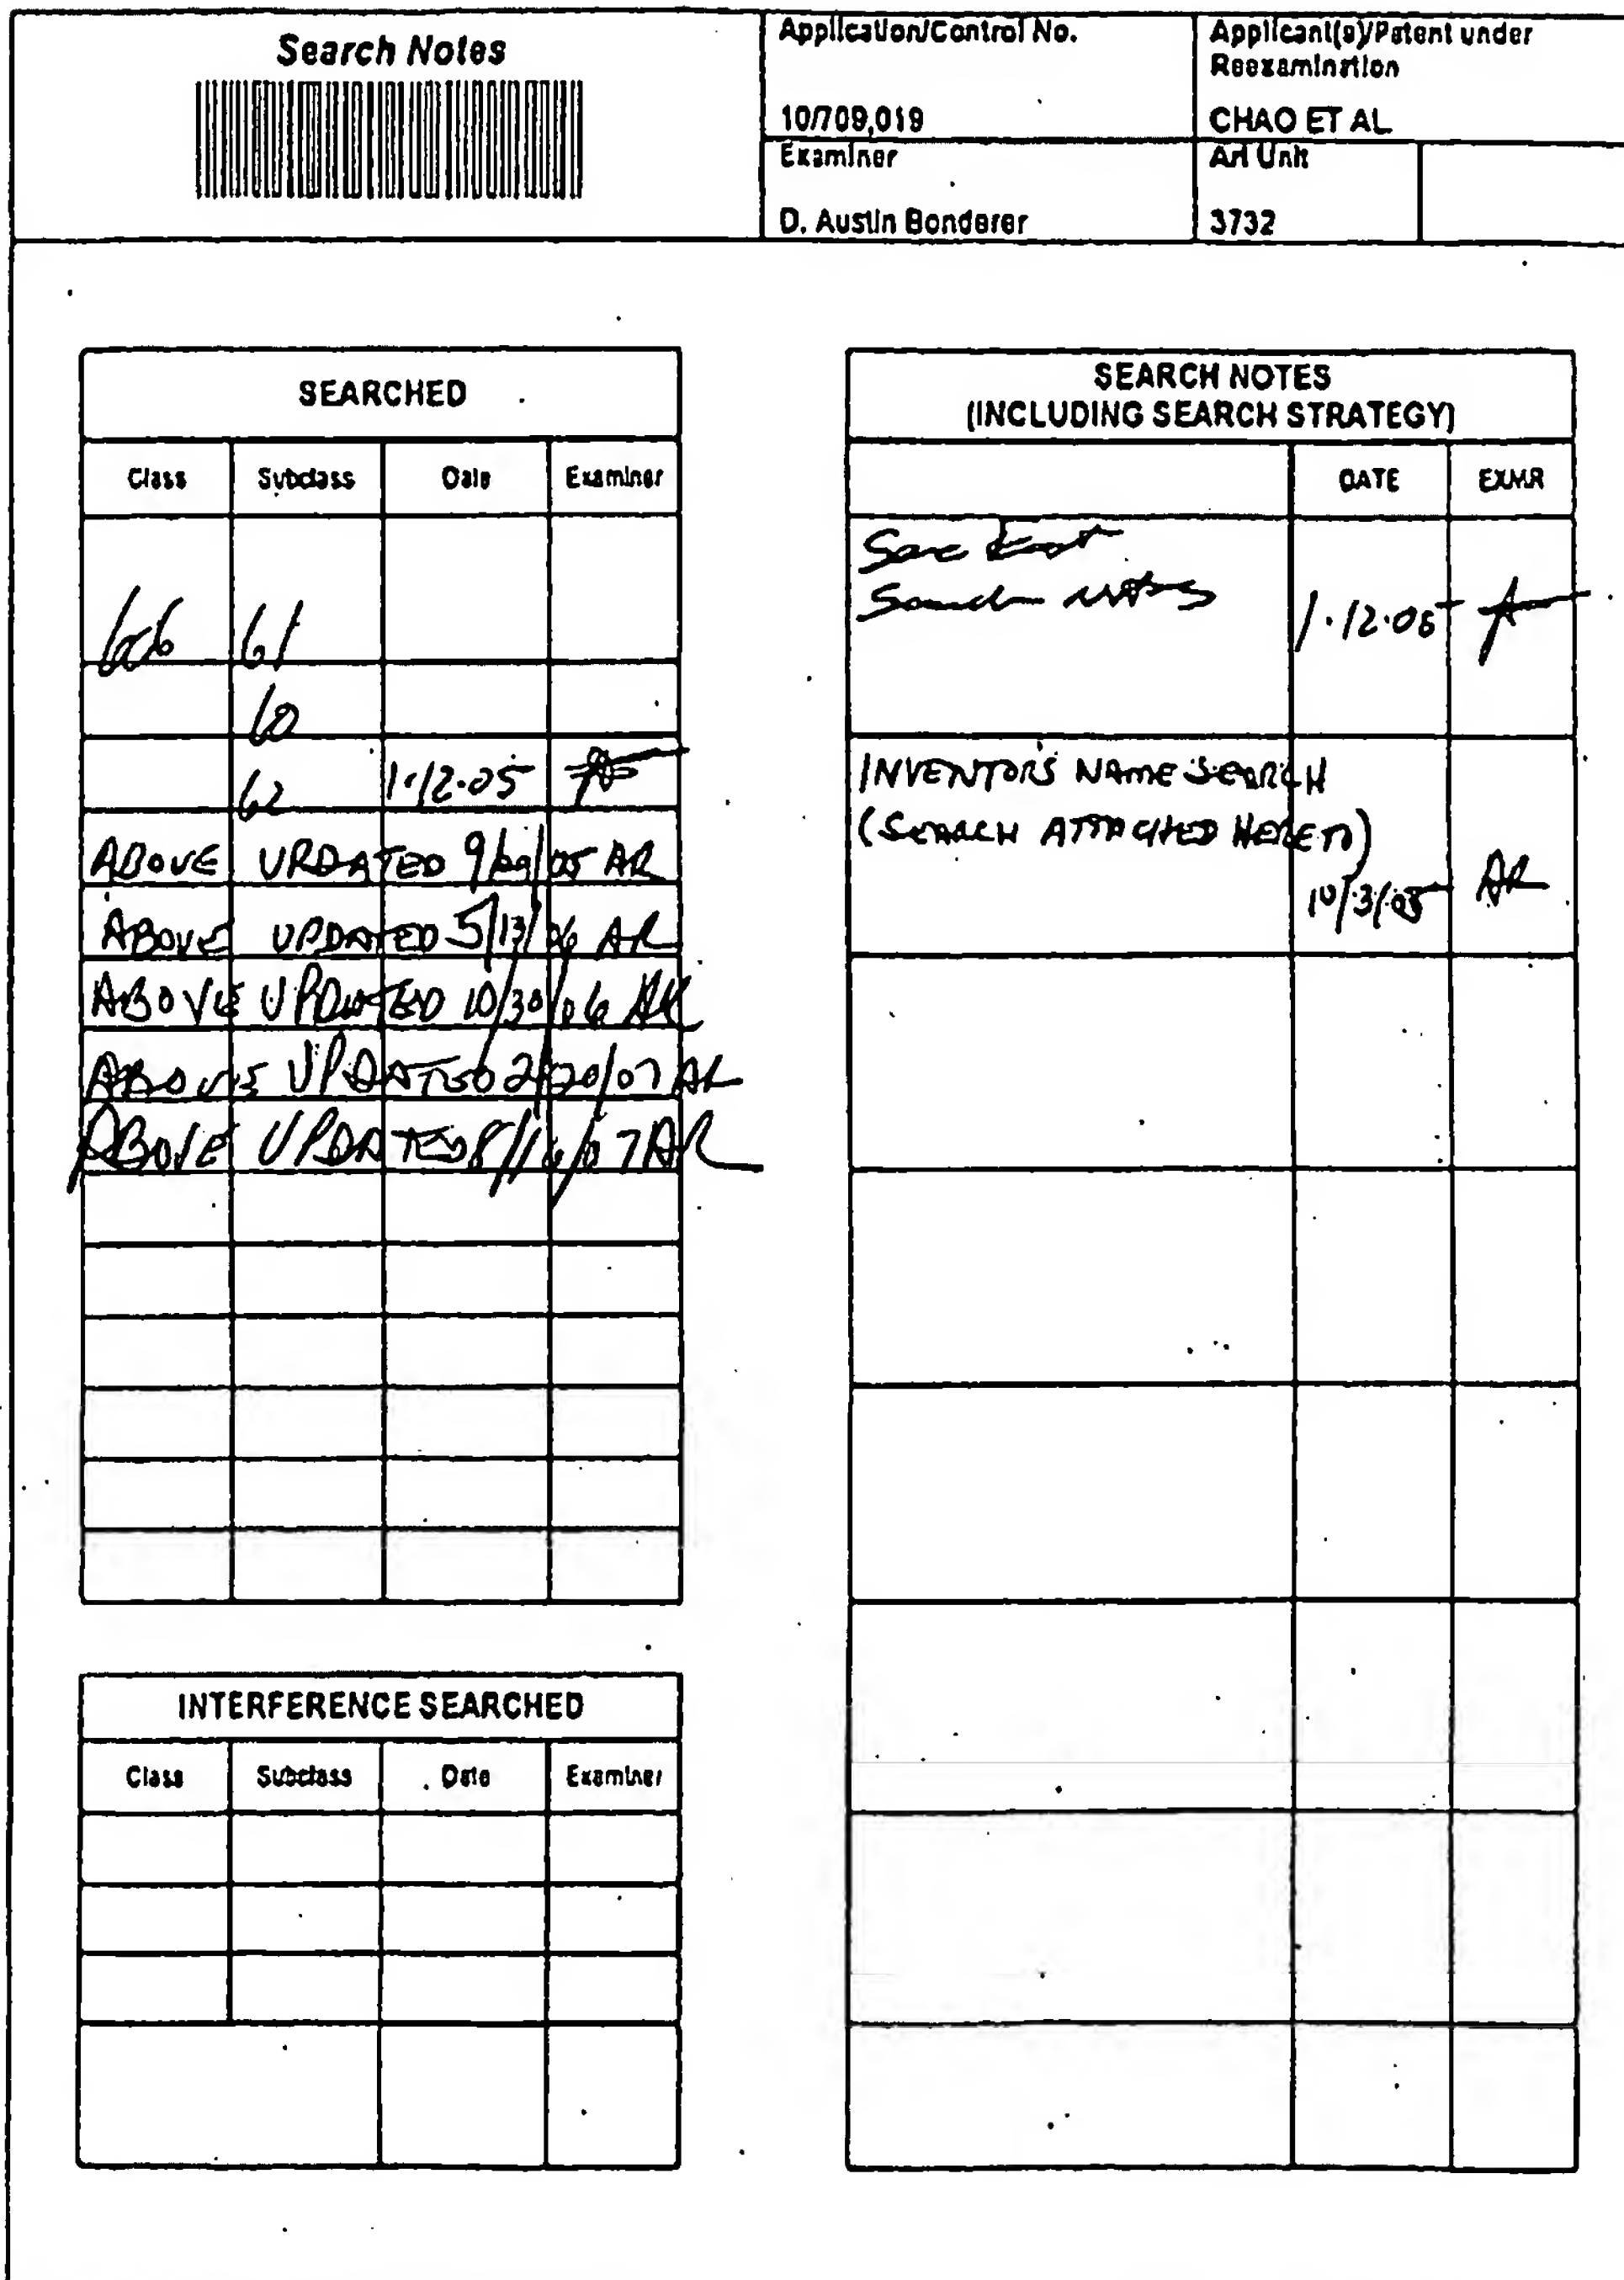 Search Notes
Application/Control No.
10/709,019
Applicant(s)/Patent under
Reexamination
CHAO ET AL
Examiner
D. Austin Bonderer
Art Unit
3732
SEARCHED
Class Subclass Date Examiner
606 61
60
62 1.12.05
ABOVE UPDATED 9/29/05 AR
ABOVE UPDATED 5/13/06 AR
ABOVE UPDATED 10/30/06 AR
ABOVE UPDATED 2/20/07 AR
ABOVE UPDATED 8/16/07 AR
INTERFERENCE SEARCHED
Class Subclass Date Examiner
SEARCH NOTES
(INCLUDING SEARCH STRATEGY)
DATE EXMR
See East
Search notes 1.12.05
INVENTORS NAME SEARCH
(SEARCH ATTACHED HERETO)
10/3/05 AR